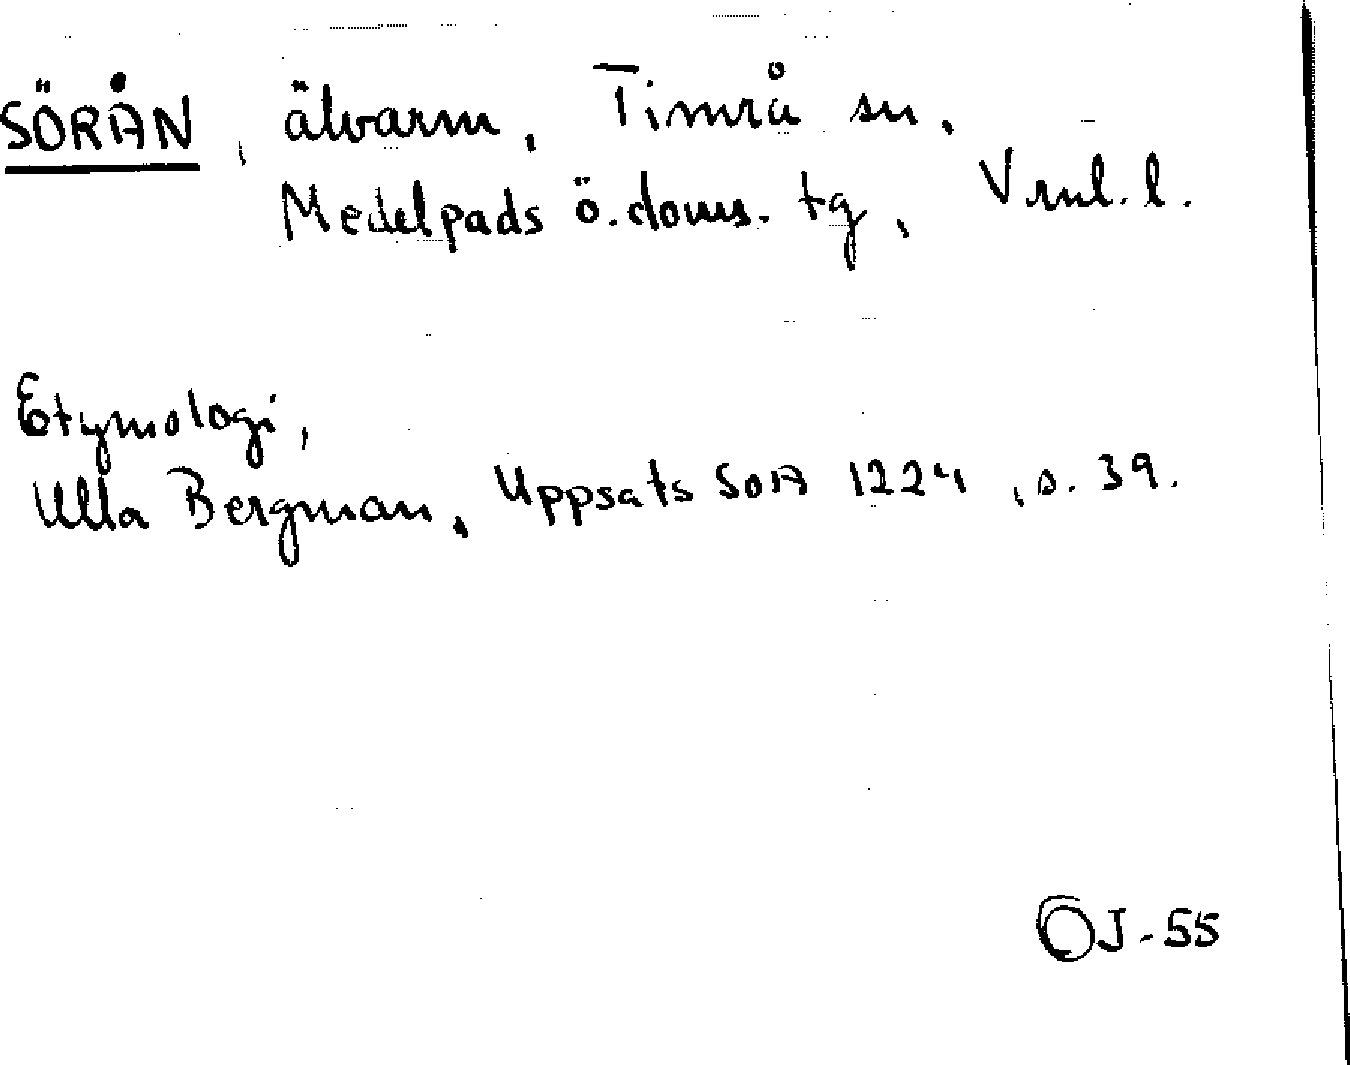 SÖRÅN, älvarm, Timrå sn.
Medelpads ö. doms. tg, Vrnl. l.
Etymologi,
Ulla Bergman, Uppsats SOA 1224, s. 39.
OJ-55